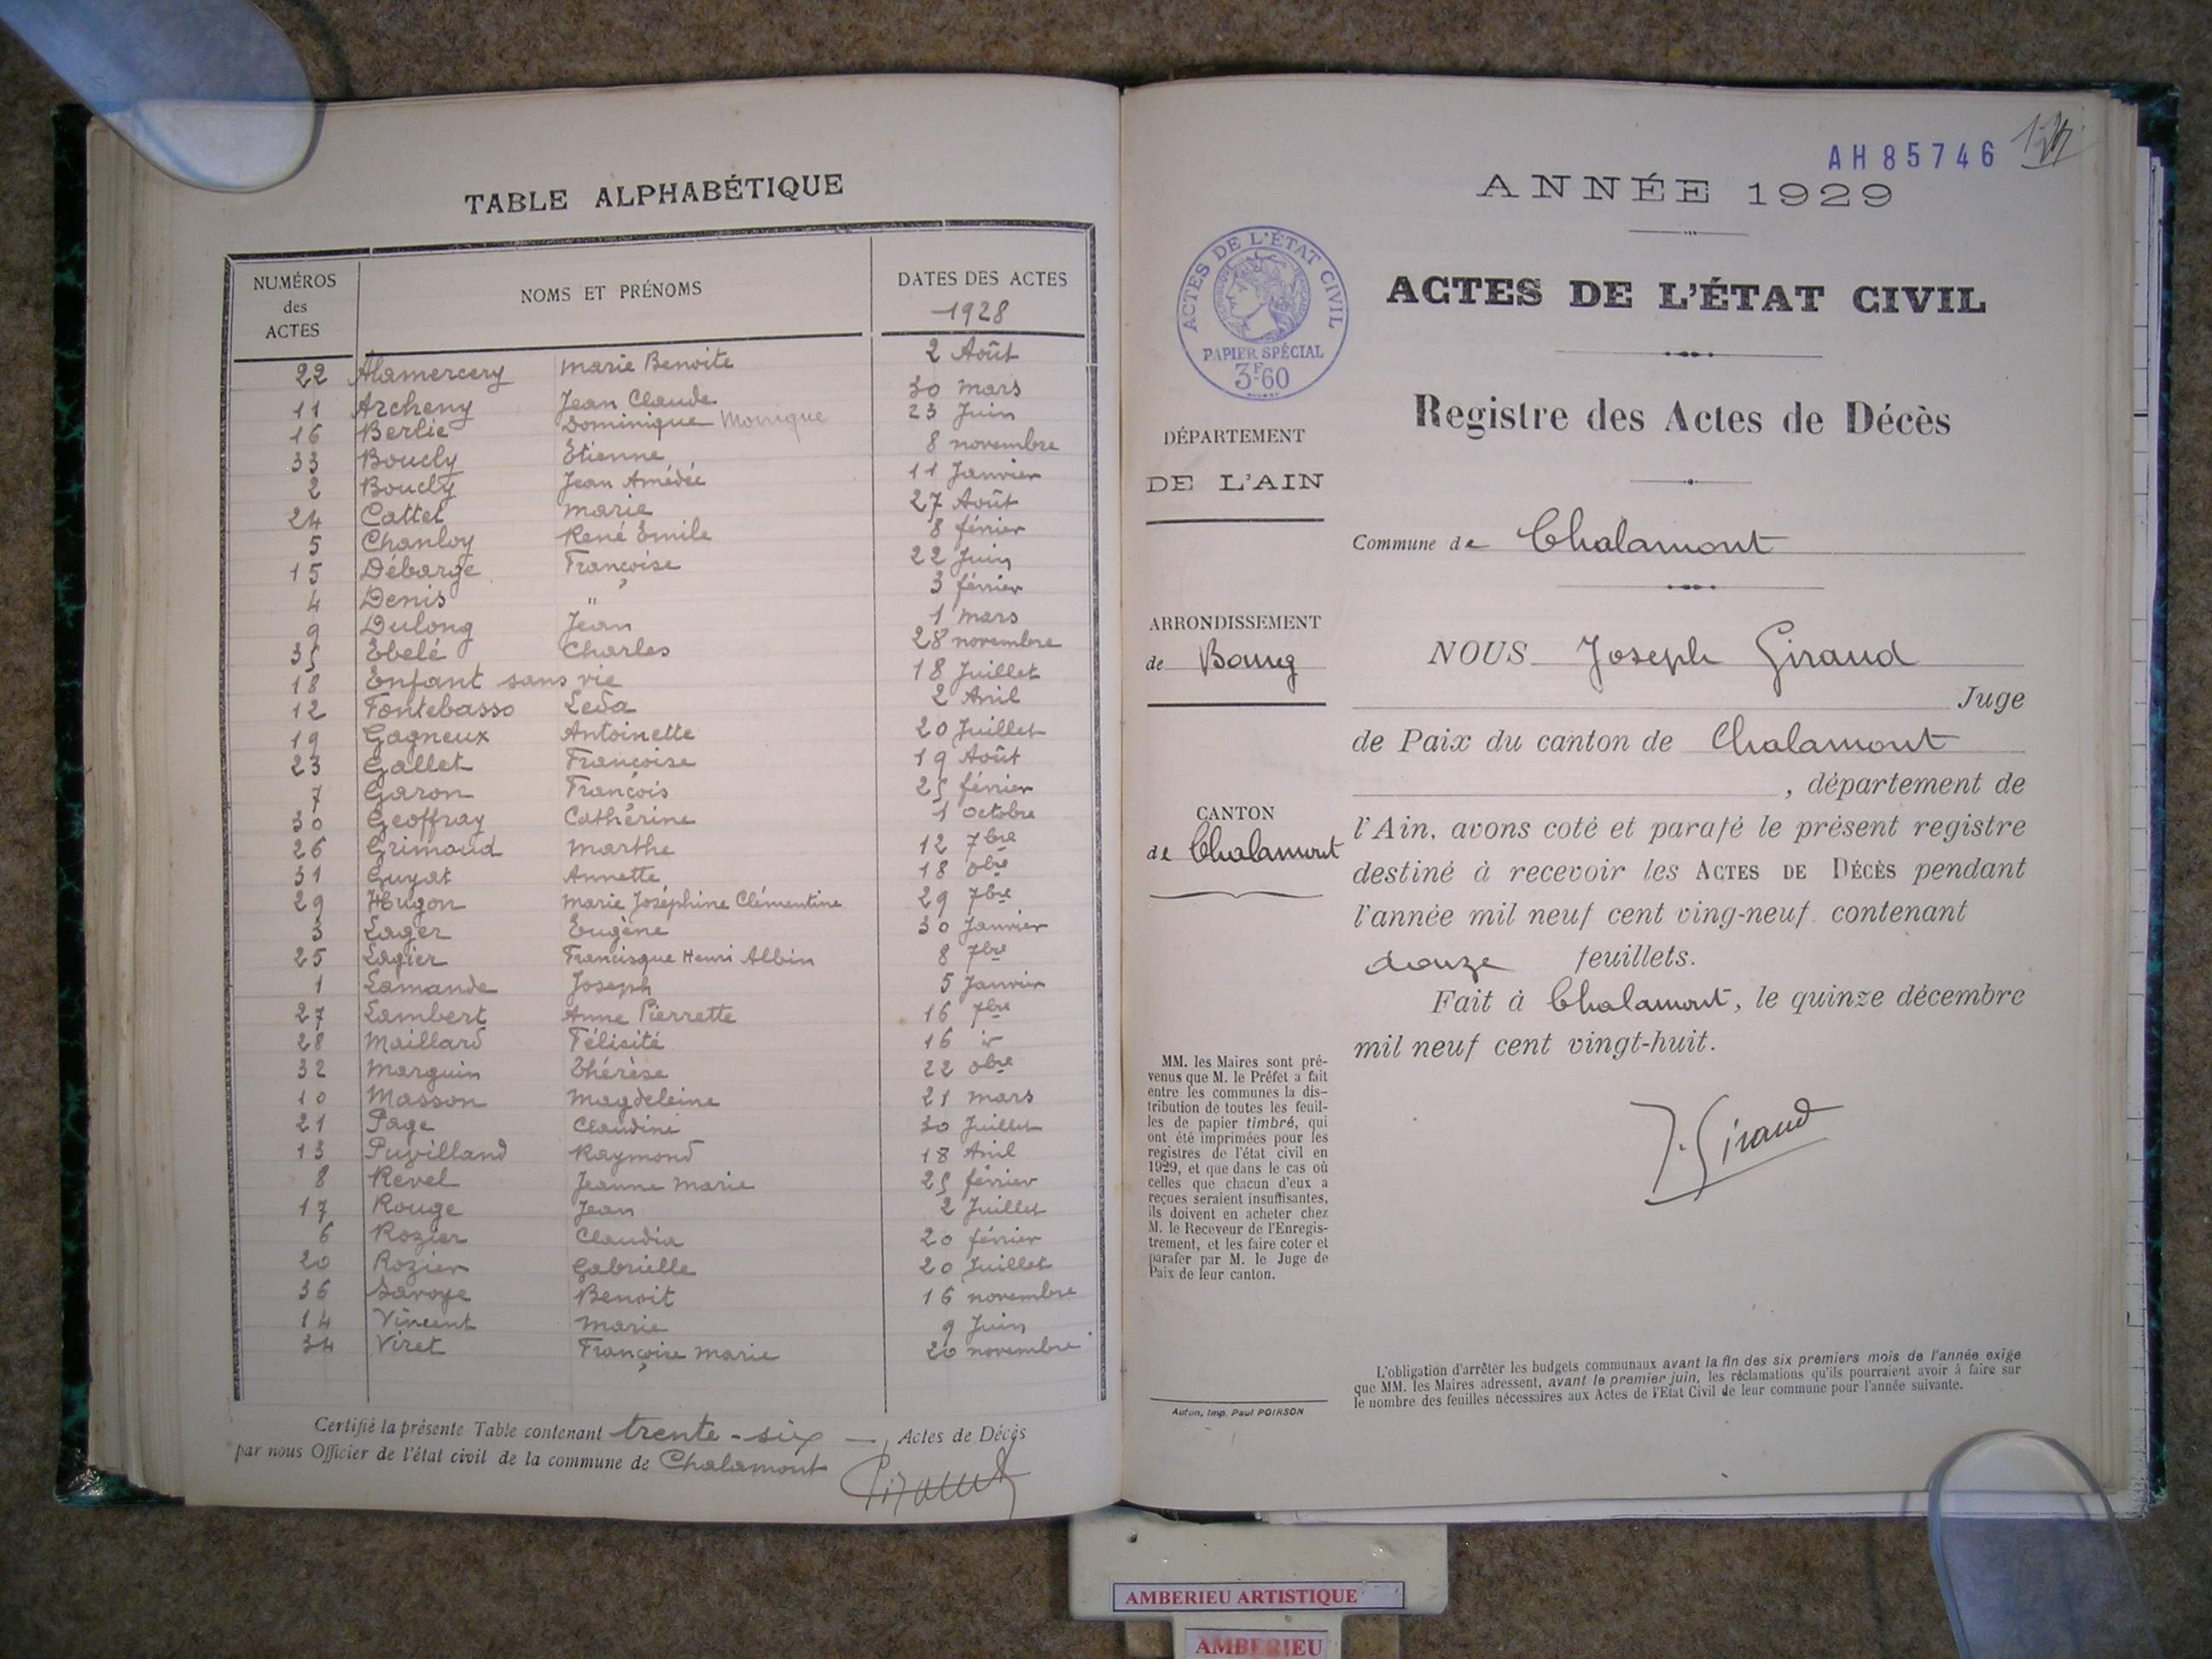 TABLE ALPHABÉTIQUE
NUMÉROS des ACTES | NOMS ET PRÉNOMS | DATES DES ACTES 1928
22 Alamercery Marie Benoite 2 Août
11 Archeny Jean Claude 30 mars
16 Bertie Dominique Monique 23 Juin
33 Boucly Etienne 8 novembre
2 Boucly Jean Amédée 11 Janvier
24 Cattet Marie 27 Août
5 Chanloy René Emile 8 février
15 Débarge Françoise 22 Juin
4 Denis " 3 février
9 Dulong Jean 1 mars
35 Ebelé Charles 28 novembre
18 Enfant sans vie 18 Juillet
12 Fontebasso Leda 2 Avril
19 Gagneux Antoinette 20 Juillet
23 Gallet Françoise 19 Août
7 Garon François 25 février
30 Geoffray Cathérine 1 octobre
26 Grimaud Marthe 12 7bre
31 Guyat Annette 18 obre
29 Hugon Marie Joséphine Clémentine 29 7bre
3 Lager Eugène 30 Janvier
25 Lagier Francisque Henri Albin 8 7bre
1 Lamande Joseph 5 Janvier
27 Lambert Anne Pierrette 16 7bre
28 Maillard Félicité 16
32 Marguin Thérèse 22 obre
10 Masson Magdeleine 21 mars
21 Page Claudine 30 Juillet
13 Puvilland Raymond 18 Avril
8 Revel Jeanne Marie 25 février
17 Rouge Jean 2 Juillet
6 Rozier Claudia 20 février
20 Rozier Gabrielle 20 Juillet
36 Savoye Benoit 16 novembre
14 Vincent Marie 9 Juin
34 Viret Françoise Marie 20 novembre
Certifié la présente Table contenant trente-six —, Actes de Décès
par nous Officier de l'état civil de la commune de Chalamont
AH 85746
ANNÉE 1929
ACTES DE L'ÉTAT CIVIL
PAPIER SPÉCIAL
3F60
ACTES DE L'ÉTAT CIVIL
Registre des Actes de Décès
DÉPARTEMENT
DE L'AIN
Commune de Chalamont
ARRONDISSEMENT
de Bourg
NOUS Joseph Giraud
Juge
de Paix du canton de Chalamont
, département de
CANTON
de Chalamont
l'Ain, avons coté et parafé le présent registre
destiné à recevoir les ACTES DE DÉCÈS pendant
l'année mil neuf cent ving-neuf contenant
douze feuillets.
Fait à Chalamont, le quinze décembre
mil neuf cent vingt-huit.
J. Giraud
MM. les Maires sont pré-
venus que M. le Préfet a fait
entre les communes la dis-
tribution de toutes les feuil-
les de papier timbré, qui
ont été imprimées pour les
registres de l'état civil en
1929, et que dans le cas où
celles que chacun d'eux a
reçues seraient insuffisantes,
ils doivent en acheter chez
M. le Receveur de l'Enregis-
trement, et les faire coter et
parafer par M. le Juge de
Paix de leur canton.
Autun, Imp. Paul POIRSON
L'obligation d'arrêter les budgets communaux avant la fin des six premiers mois de l'année exige
que MM. les Maires adressent, avant le premier juin, les réclamations qu'ils pourraient avoir à faire sur
le nombre des feuilles nécessaires aux Actes de l'Etat Civil de leur commune pour l'année suivante.
AMBERIEU ARTISTIQUE
AMBERIEU